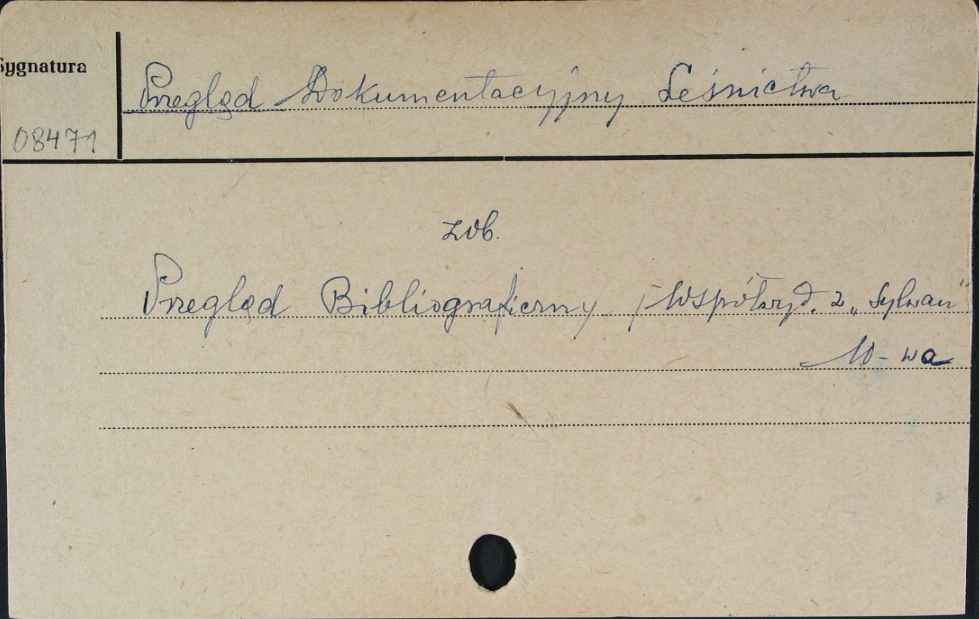 Sygnatura
Przegląd Dokumentacyjny Leśnictwa
08471
zob.
Przegląd Bibliograficzny /Współwyd. z „Sylwan"
W-wa